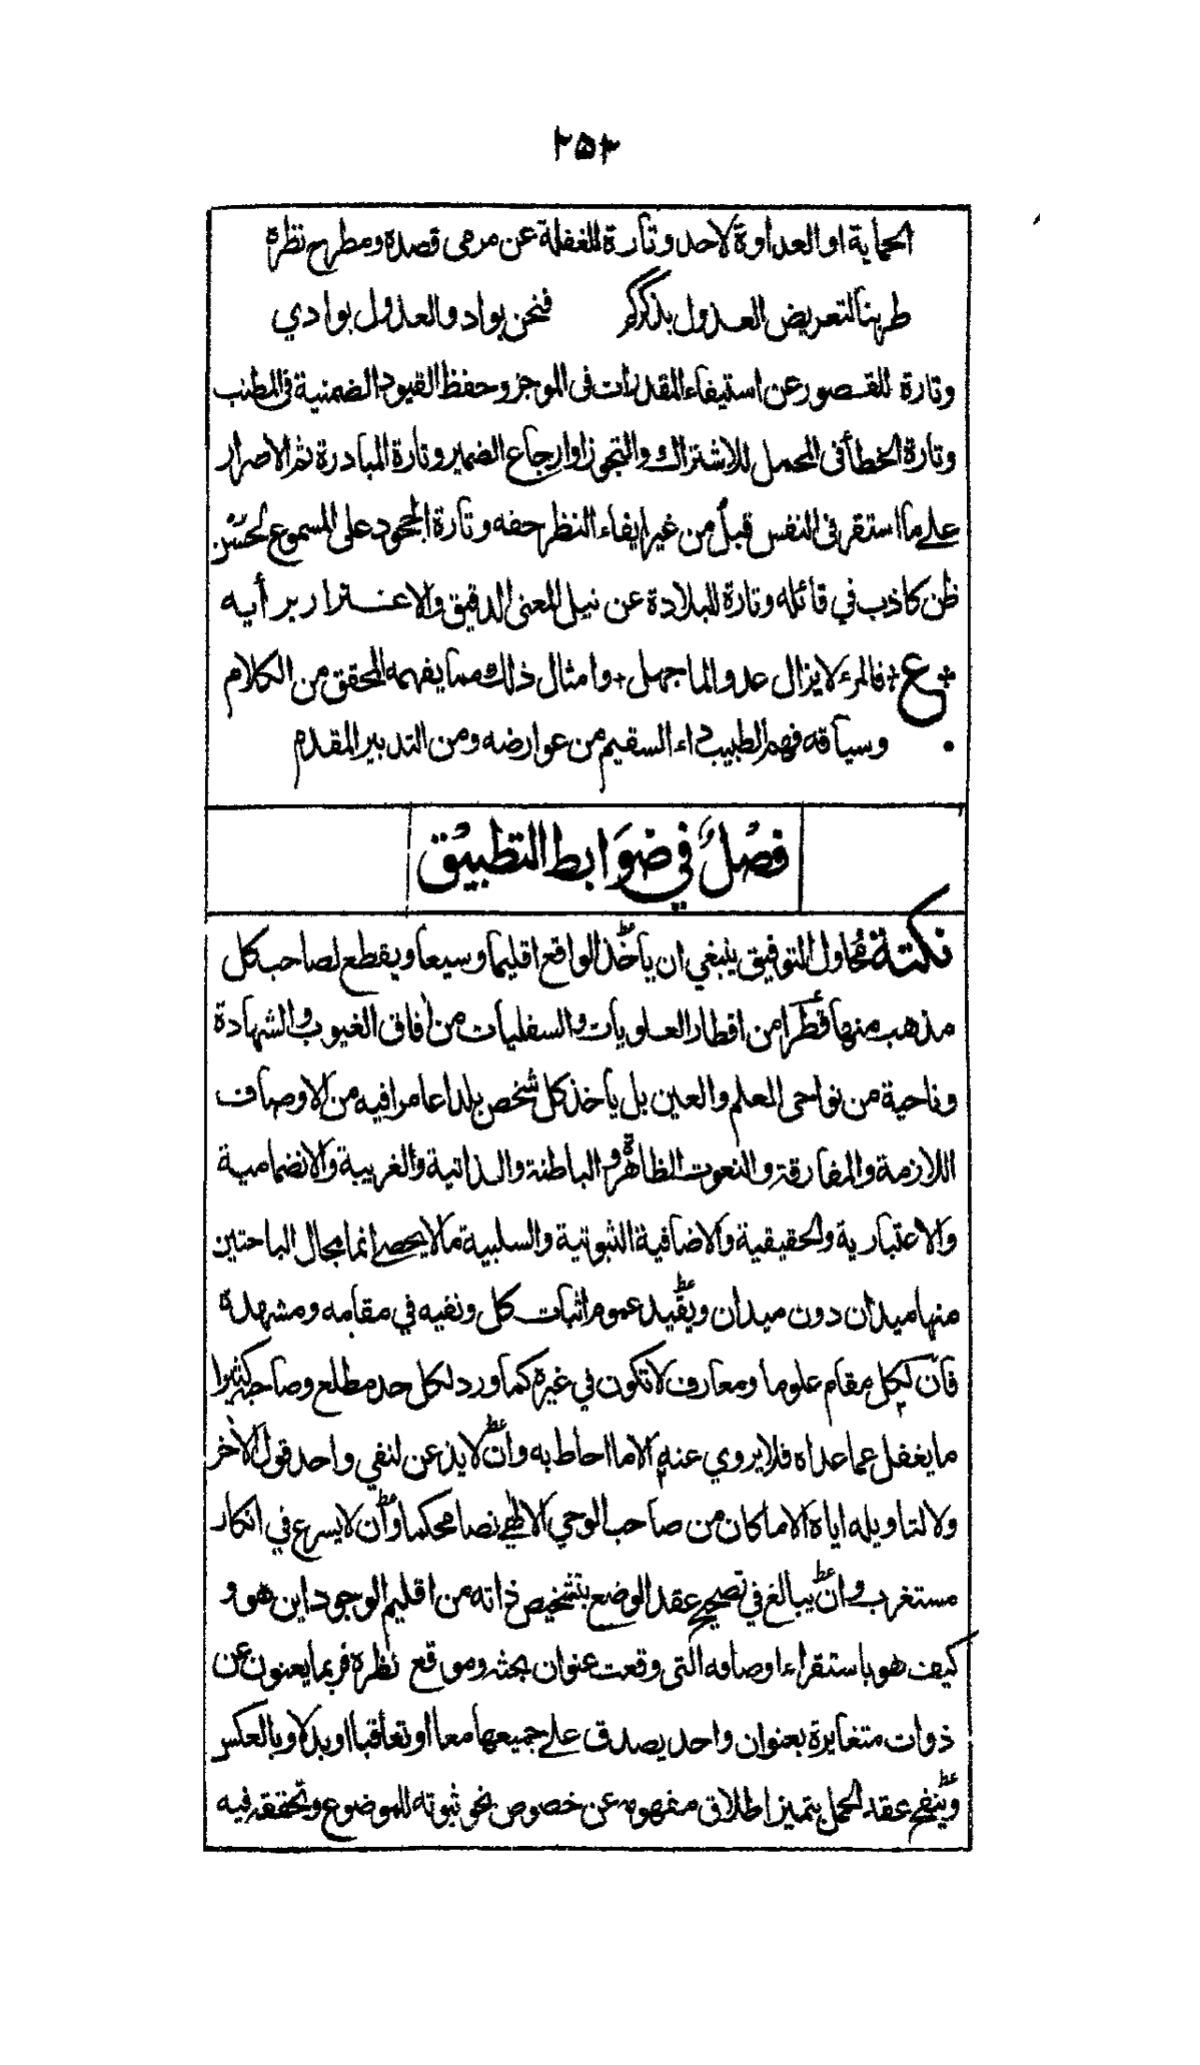 ٢٥٣
الحماية او العداوة لاحد وتارة للغفلة عن مرمى قصده ومطرح نظره
طربنا لتعريض العذول بذكركم فنحن بواد والعذول بوادي
وتارة للقصور عن استيفاء المقدرات فى الموجز وحفظ القيود الضمنية فى المطنب
وتارة الخطأ فى المحمل للاشتراك والتجوز او ارجاع الضمير وتارة المبادرة ثم الاصرار
علے ما استقر فى النفس قبل من غير ايفاء النظر حقه وتارة الجحود على المسموع لحسن
ظن كاذب في قائله وتارة للبلادة عن نيل المعنى الدقيق والاغترار برأيه
ع فالمرء لا يزال عدوا لما جهل وامثال ذلك مما يفهمه المحقق من الكلام
وسياقه فهم الطبيب داء السقيم من عوارضه ومن التدبير المقدم
فصل في ضوابط التطبيق
نكتة محاول التوفيق ينبغي ان ياخذ الواقع اقليما وسيعا ويقطع لصاحب كل
مذهب منها قطرا من اقطار العلويات والسفليات من افاق الغيوب والشهادة
وناحية من نواحى العلم والعين بل ياخذ كل شخص بلدا عامرا فيه من الاوصاف
اللازمة والمفارقة والنعوت الظاهرة والباطنة والذاتية والغريبة والانضمامية
والاعتبارية والحقيقية والاضافية الثبوتية والسلبية مالا يحصے انما مجال الباحثين
منها ميدان دون ميدان ويقيد عموم اثبات كل ونفيه في مقامه ومشهده
فان لكل مقام علوما ومعارف لا تكون في غيره كما ورد لكل حد مطلع وصاحبه كثيرا
ما يغفل عما عداه فلا يروي عنه الا ما احاط به وان لا يذعن لنفي واحد قول الآخر
ولا لتاويله اياه الا ما كان من صاحب الوحي الالهي نصا محكما وان لا يسرع في انكار
مستغرب وان يبالغ في تصحيح عقد الوضع بتشخيص ذاته من اقليم الوجود اين هو و
كيف هو باستقراء اوصافه التى وقعت عنوان بحثه وموقع نظره فربما يعنون عن
ذوات متغايرة بعنوان واحد يصدق علے جميعها معا او تعاقبا او بدلا وبالعكس
وينقح عقد الحمل بتميز اطلاق مفهومه عن خصوص نحو ثبوته للموضوع وتحققه فيه